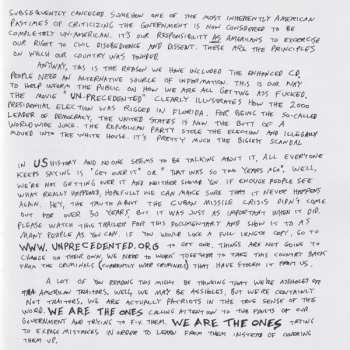 SUBSEQUENTLY CANCELED. SOMEHOW ONE OF THE MOST INHERENTLY AMERICAN
PASTIMES OF CRITICIZING THE GOVERNMENT IS NOW CONSIDERED TO BE
COMPLETELY UN-AMERICAN. IT'S OUR RESPONSIBILITY AS AMERICANS TO EXERCISE
OUR RIGHT TO CIVIL DISOBEDIENCE AND DISSENT. THESE ARE THE PRINCIPLES
ON WHICH OUR COUNTRY WAS FOUNDED
ANYWAY, THIS IS THE REASON WE HAVE INCLUDED THE ENHANCED CD.
PEOPLE NEED AN ALTERNATIVE SOURCE OF INFORMATION. THIS IS OUR WAY
TO HELP INFORM THE PUBLIC ON HOW WE ARE ALL GETTING ASS FUCKED.
THE MOVIE "UNPRECEDENTED" CLEARLY ILLUSTRATES HOW THE 2000
PRESIDENTIAL ELECTION WAS RIGGED IN FLORIDA. FOR BEING THE SO-CALLED
LEADER OF DEMOCRACY, THE UNITED STATES IS NOW THE BUTT OF A
WORLD-WIDE JOKE. THE REPUBLICAN PARTY STOLE THE ELECTION AND ILLEGALLY
MOVED INTO THE WHITE HOUSE. IT'S PRETTY MUCH THE BIGGEST SCANDAL
IN US HISTORY AND NO ONE SEEMS TO BE TALKING ABOUT IT. ALL EVERYONE
KEEPS SAYING IS "GET OVER IT" OR "THAT WAS SO TWO YEARS AGO". WELL,
WE'RE NOT GETTING OVER IT AND NEITHER SHOULD YOU. IF ENOUGH PEOPLE SEE
WHAT REALLY HAPPENED, HOPEFULLY WE CAN MAKE SURE THAT IT NEVER HAPPENS
AGAIN. HEY, THE TRUTH ABOUT THE CUBAN MISSILE CRISIS DIDN'T COME
OUT FOR OVER 30 YEARS, BUT IT WAS JUST AS IMPORTANT WHEN IT DID.
PLEASE WATCH THIS TRAILER FOR THIS DOCUMENTARY AND SHOW IT TO AS
MANY PEOPLE AS YOU CAN. IF YOU WOULD LIKE A FULL LENGTH COPY, GO TO
WWW.UNPRECEDENTED.ORG TO GET ONE. THINGS ARE NOT GOING TO
CHANGE ON THEIR OWN, WE NEED TO WORK TOGETHER TO TAKE THIS COUNTRY BACK
FROM THE CRIMINALS (CURRENTLY WAR CRIMINALS) THAT HAVE STOLEN IT FROM US.
A LOT OF YOU READING THIS MIGHT BE THINKING THAT WE'RE ASSHOLES OR
AMERICAN TRAITORS. WELL, WE MAY BE ASSHOLES, BUT WE'RE CERTAINLY
NOT TRAITORS, WE ARE ACTUALLY PATRIOTS IN THE TRUE SENSE OF THE
WORD. WE ARE THE ONES CALLING ATTENTION TO THE FAULTS OF OUR
GOVERNMENT AND TRYING TO FIX THEM. WE ARE THE ONES TRYING
TO EXPOSE MISTAKES IN ORDER TO LEARN FROM THEM INSTEAD OF COVERING
THEM UP.